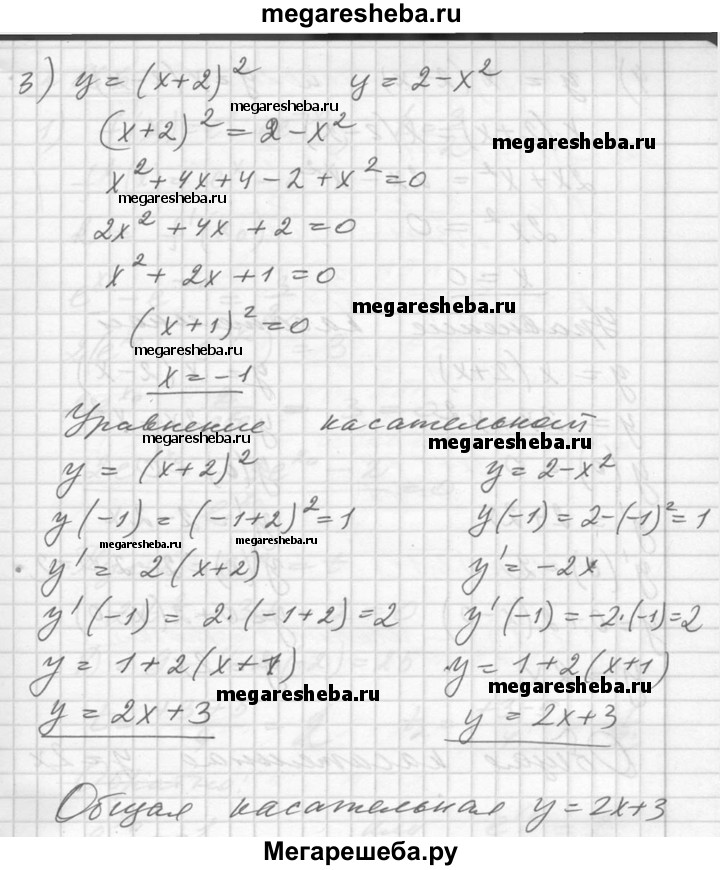 megaresheba.ru
3) y = (x+2)² y = 2 – x²
megaresheba.ru
(x+2)² = 2 – x²
megaresheba.ru
x² + 4x + 4 – 2 + x² = 0
megaresheba.ru
2x² + 4x + 2 = 0
x² + 2x + 1 = 0
megaresheba.ru
(x+1)² = 0
megaresheba.ru
x = –1
Уравнение касательной
megaresheba.ru megaresheba.ru
y = (x+2)² y = 2 – x²
y(–1) = (–1+2)² = 1 y(–1) = 2–(–1)² = 1
megaresheba.ru megaresheba.ru
y' = 2(x+2) y' = –2x
y'(–1) = 2·(–1+2) = 2 y'(–1) = –2·(–1) = 2
y = 1+2(x+1) y = 1+2(x+1)
megaresheba.ru megaresheba.ru
y = 2x+3 y = 2x+3
Общая касательная y = 2x+3
megaresheba.ru
Мегарешеба.ру